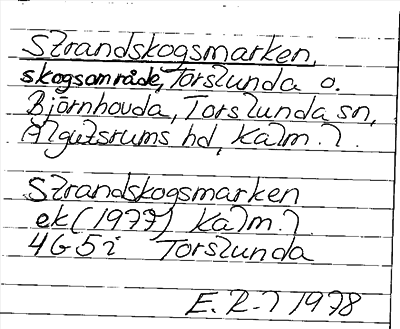 Strandskogsmarken,
skogsområde, Torslunda o.
Björnhovda, Torslunda sn,
Algutsrums hd, Kalm. l.
Strandskogsmarken
ek (1977) Kalm. l
4G5i Torslunda
1978